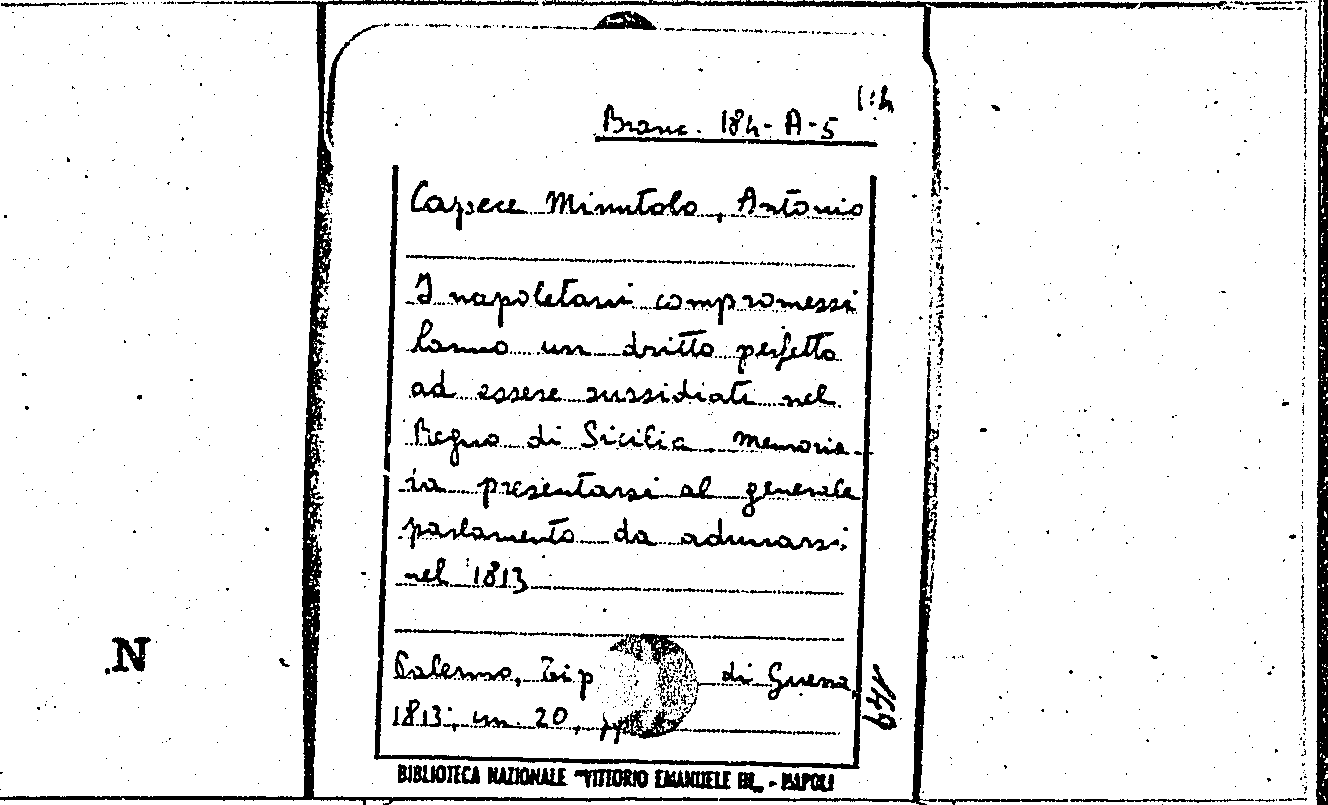 Branc. 184-A-5
Capece Minutolo, Antonio
I napoletani compromessi
hanno un dritto perfetto
ad essere sussidiati nel
Regno di Sicilia Memoria
da presentarsi al generale
parlamento da adunarsi
nel 1813
Palermo, Tip di Guerra,
1813, in 20, pp
149
N
BIBLIOTECA NAZIONALE "VITTORIO EMANUELE III„ - NAPOLI